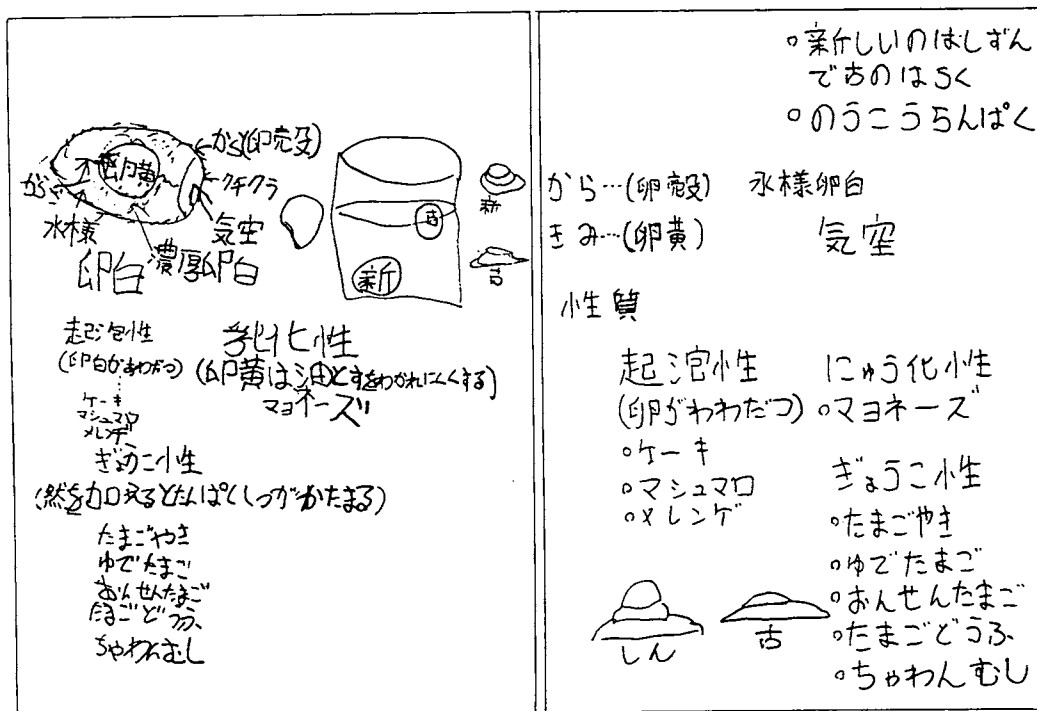 から(卵殻)
クチクラ
卵黄
から
水様
卵白
濃厚卵白
気空
古
新
新
古
起泡性
(卵白があわだつ)
ケーキ
マシュマロ
メレンゲ
乳化性
(卵黄は油とすをわかれにくくする)
マヨネーズ
ぎょうこ性
(然を加えるとたんぱくしつがかたまる)
たまごやき
ゆでたまご
おんせんたまご
たまごどうふ
ちゃわんむし
○新しいのはしずん
で古のはうく
○のうこうらんぱく
から…(卵殻) 水様卵白
きみ…(卵黄) 気空
性質
起泡性
(卵がわわだつ)
○ケーキ
○マシュマロ
○メレンゲ
にゅう化性
○マヨネーズ
ぎょうこ性
○たまごやき
○ゆでたまご
○おんせんたまご
○たまごどうふ
○ちゃわんむし
しん
古